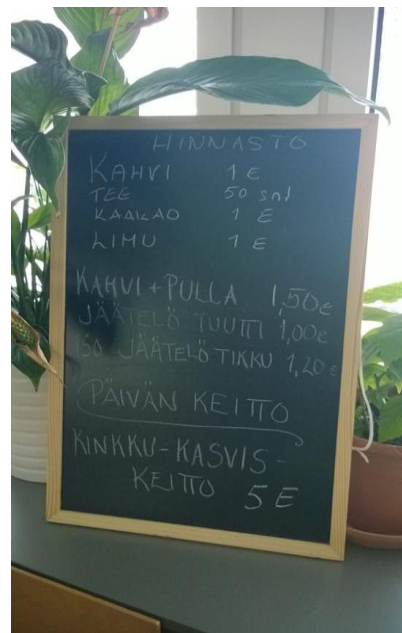 HINNASTO
KAHVI 1 €
TEE 50 snt
KAAKAO 1 €
LIMU 1 €
KAHVI + PULLA 1,50€
JÄÄTELÖ TUUTTI 1,00€
ISO JÄÄTELÖTIKKU 1,20€
PÄIVÄN KEITTO
KINKKU-KASVIS-
KEITTO 5 €